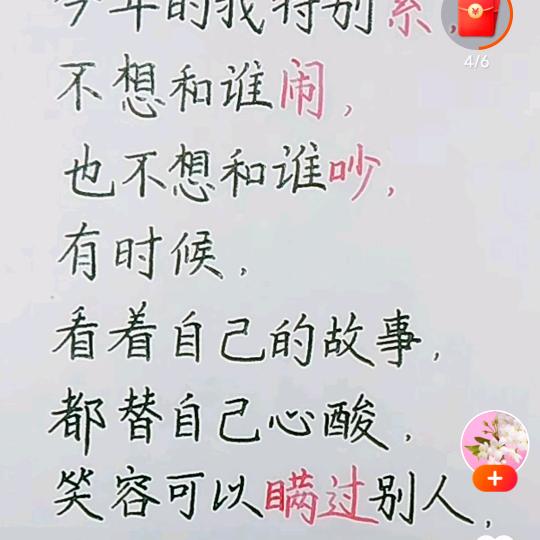 今年的我特别累，
4/6
不想和谁闹，
也不想和谁吵，
有时候，
看着自己的故事，
都替自己心酸，
笑容可以瞒过别人，